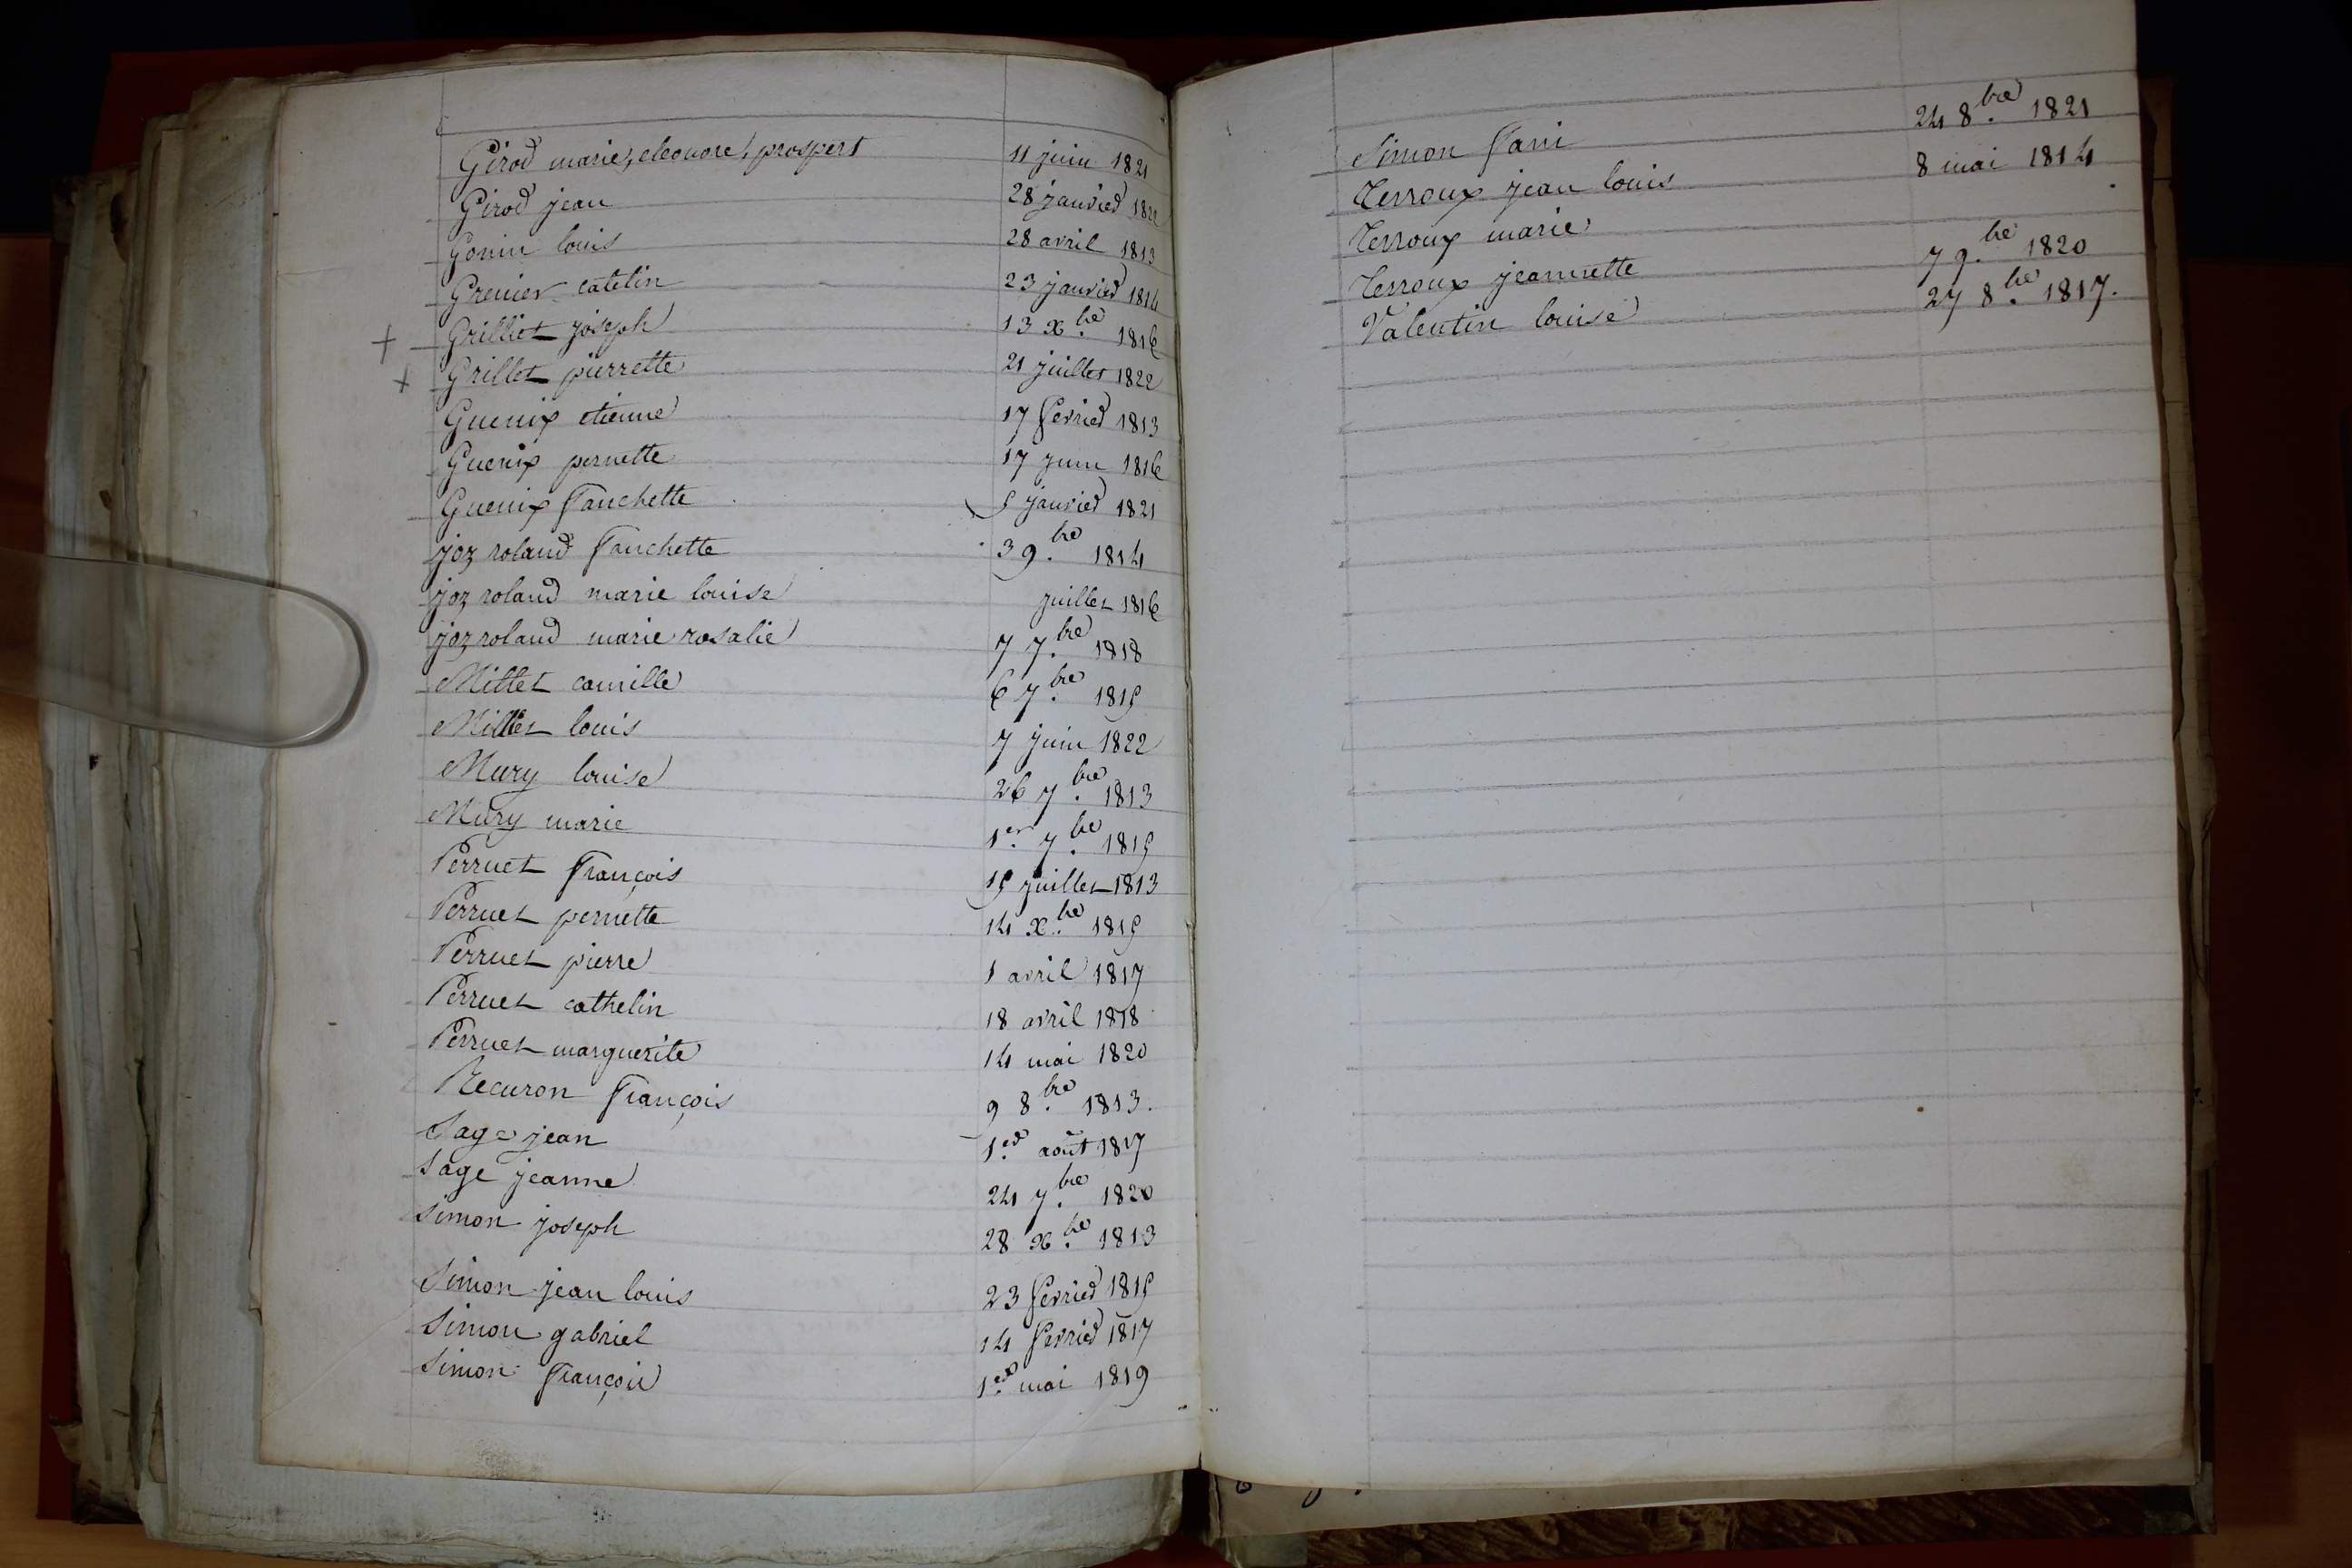 Girod marie, eleonore, prospert 11 juin 1821
Girod jean 28 janvier 1822
Gonin louis 28 avril 1813
Grenier catelin 23 janvier 1814
+ Grilliet joseph 13 x.bre 1816
+ Grillet pierrette 21 juillet 1822
Guenix etienne 17 fevrier 1813
Guenix pernette 17 juin 1816
Guenix fanchette 5 janvier 1821
joz roland fanchette 3 9.bre 1814
joz roland marie louise juillet 1816
joz roland marie rosalie 7 7.bre 1818
Mittet camille 6 7.bre 1815
Mittet louis 7 juin 1822
Mury louise 26 7.bre 1813
Mury marie 1.er 7.bre 1815
Perruet françois 15 juillet 1813
Perruet pernette 14 x.bre 1815
Perruet pierre 1 avril 1817
Perruet cathelin 18 avril 1818
Perruet marguerite 14 mai 1820
Recuron françois 9 8.bre 1813.
Sage jean 1.er août 1817
Sage jeanne 24 7.bre 1820
Simon joseph 28 x.bre 1813
Simon jean louis 23 fevrier 1815
Simon gabriel 14 fevrier 1817
Simon françois 1.er mai 1819
Simon fani 24 8.bre 1821
Terroux jean louis 8 mai 1814
Terroux marie
Terroux jeannette 7 9.bre 1820
Valentin louise 27 8.bre 1817.